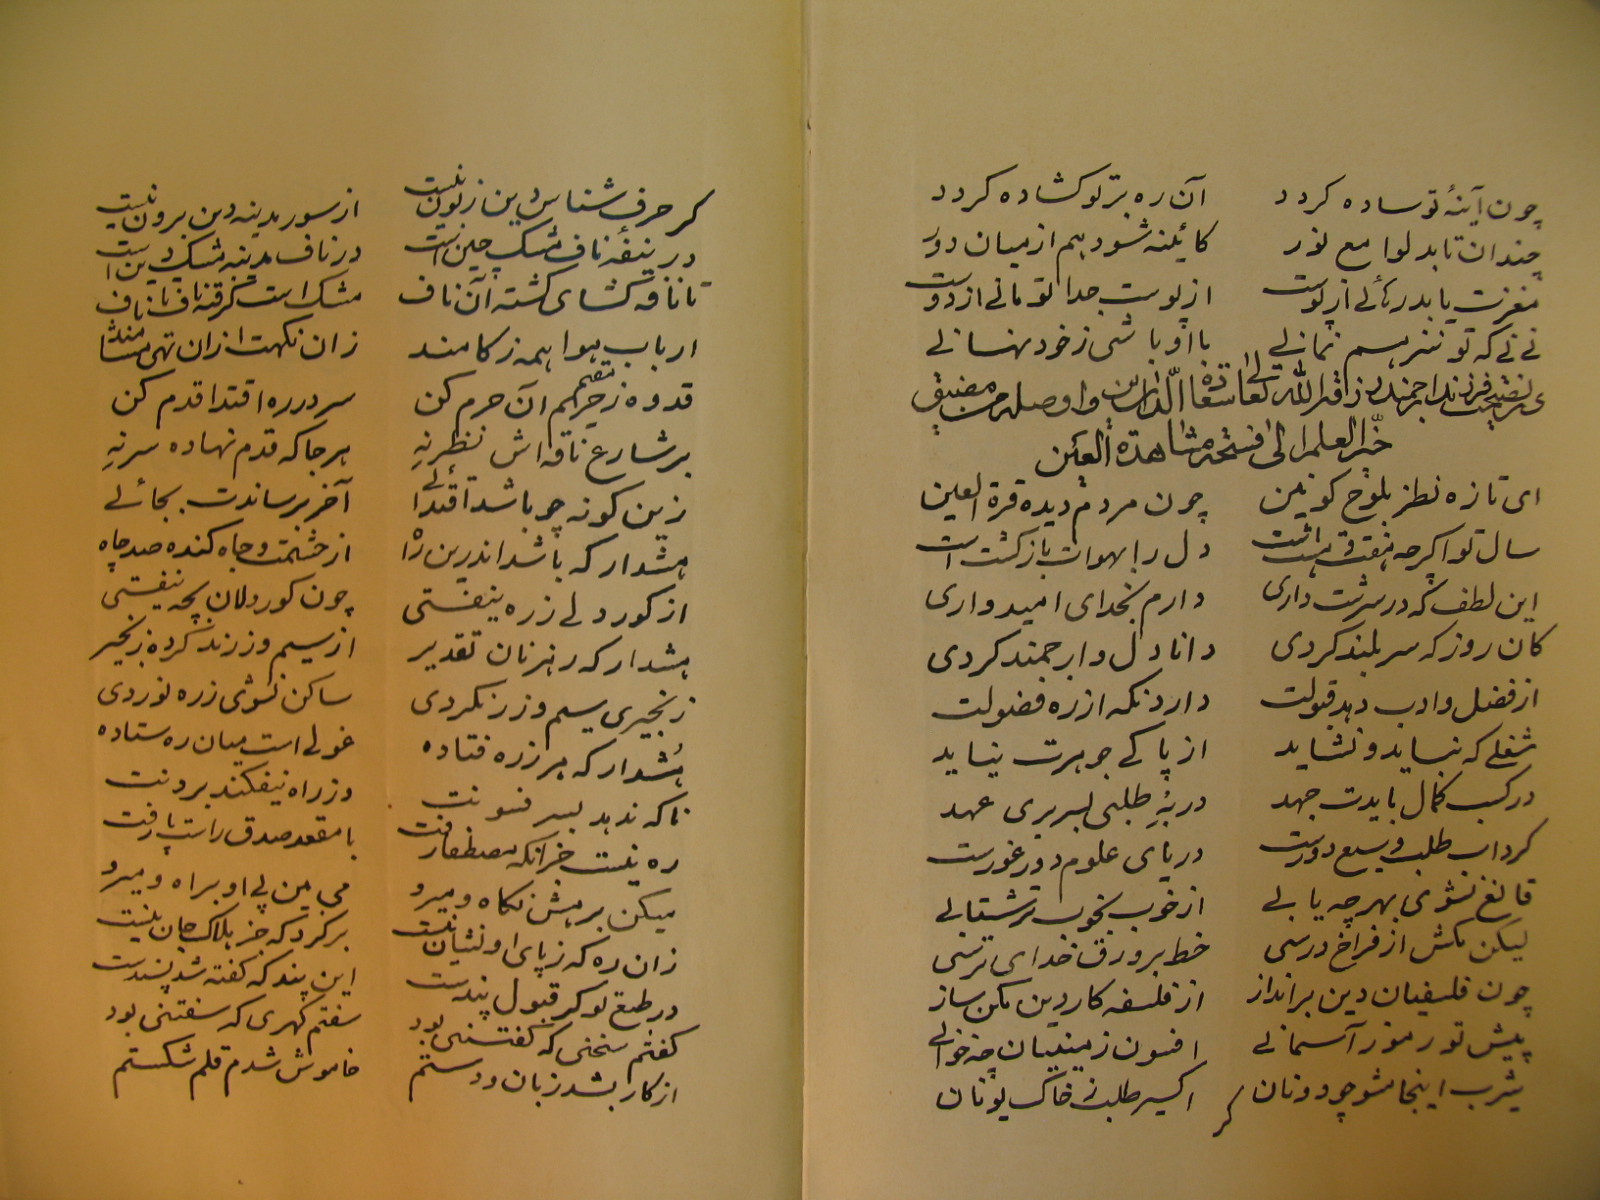 چون آینهٔ تو ساده گردد آن ره بر تو گشاده گردد
چندان تابد لوامع نور کائینه شود هم از میان دور
مغزت یابد رهائے از پوست از پوست جدا تو مانے از دوست
نے نے که تو نیز هم نمانے با او باشی ز خود نهانے
خبر العلم الی فسحة مشاهدة العین
ای تازه نظر بلوح کونین چون مردم دیده قرة العین
سال تو اگرچه هفت و هشتست دل را بهوات بازگشت است
این لطف که در سرشت داری دارم بخدای امیدواری
کان روز که سر بلند کردی دانا دل و ارجمند کردی
از فضل و ادب دهد قبولت دارد نگه از ره فضولت
شغلے که نباید و نشاید از پاکے جوهرت نیاید
در کسب کمال بایدت جهد در رهٔ طلبی بسر بری عهد
گرداب طلب وسیع دورست دریای علوم دور غورست
قانع نشوی بهر چه یابے از خوب بخوب تر شتابے
لیکن مکش از فراخ درسی خط بر ورق خدای ترسی
چون فلسفیان دین برانداز از فلسفه کار دین مکن ساز
پیش تو رموز آسمانے افسون زمینیان چه خوانے
یثرب اینجا مشو چو دونان اکسیر طلب ز خاک یونان
گر
گر حرف شناس دین زبون نیست از سور مدینه دین برون نیست
در نیفهٔ ناف مشک چین است در ناف مدینه مشک دین است
تا نافه گشای گشته آن ناف مشک است گرفته قاف تا قاف
ارباب هوا همه زکامند زان نکهت ازان تهی مشامند
قدوه ز حریم آن حرم کن سر در ره اقتدا قدم کن
بر شارع ناقه اش نظر نهِ هر جا که قدم نهاده سر نهِ
زین گونه چو باشد اقتدائے آخر برساندت بجائے
هشدار که باشد اندرین راه از حشمت و جاه کنده صد چاه
از کور دلے ز ره نیفتی چون کور دلان بچه نیفتی
هشدار که رهزنان تقدیر از سیم و زرند کرده زنجیر
زنجیری سیم و زر نگردی ساکن نشوی ز ره نوردی
هشدار که هر ز ره فتاده غولے است میان ره ستاده
تا که ندهد بسر فسونت وز راه نیفکند برونت
ره نیست جز آنکه مصطفا رفت با مقعد صدق راست پا رفت
میکن بر هش نگاه و میرو می بین پے او براه و میرو
زان ره که ز پای او نشان نیست برگرد که جز هلاک جان نیست
در طبع تو گر قبول پندست این پند که گفته شد پسندست
گفتم سخنی که گفتنی بود سفتم گهری که سفتنی بود
از کار بشد زبان و دستم خاموش شدم قلم شکستم